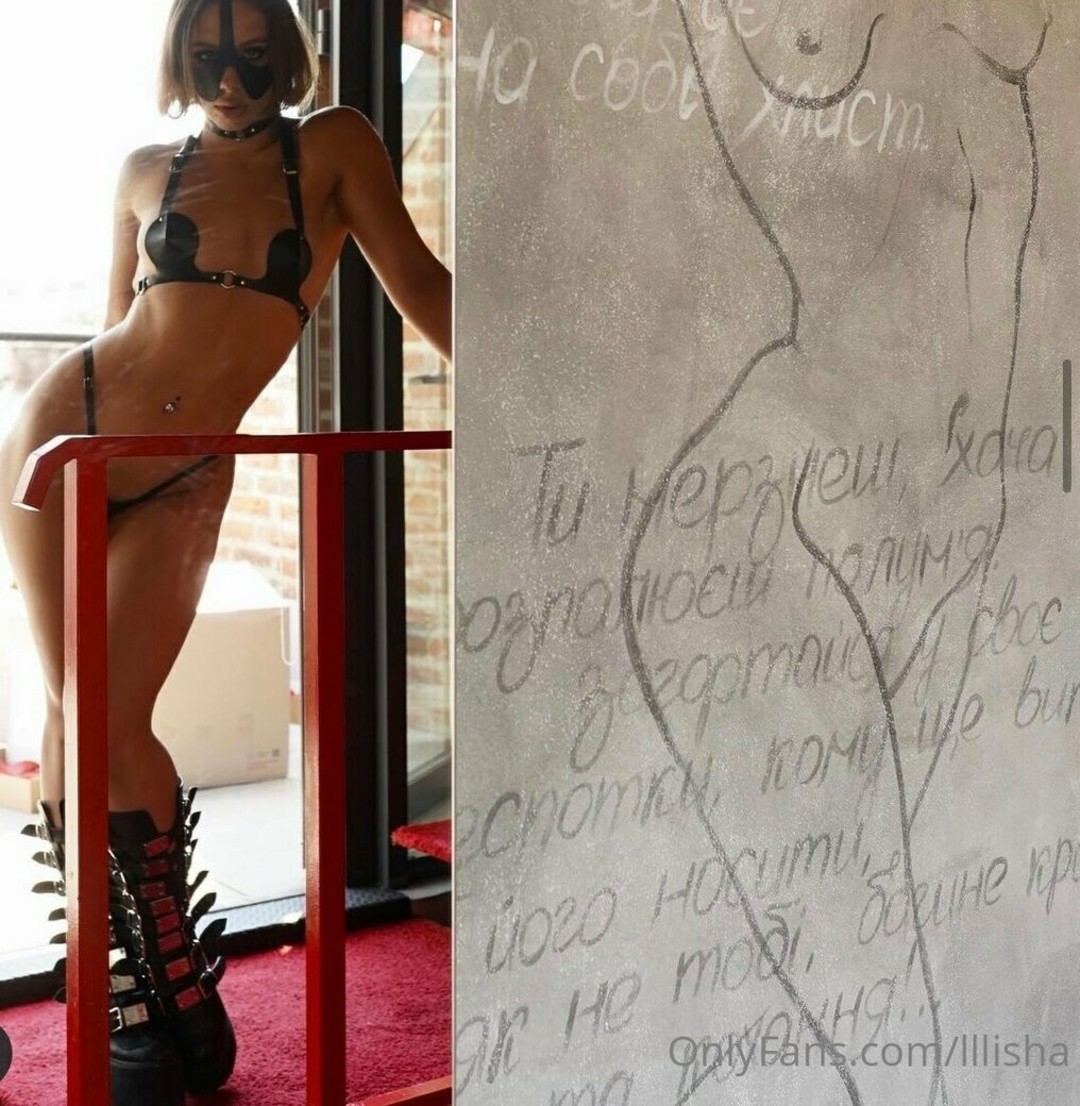 на собі хлист.
Ти мерзнеш, хоча
розпалюєш полум'я.
загортайся у своє
кому ще
його носити,
як не тобі, богине
та
OnlyFans.com/lllisha